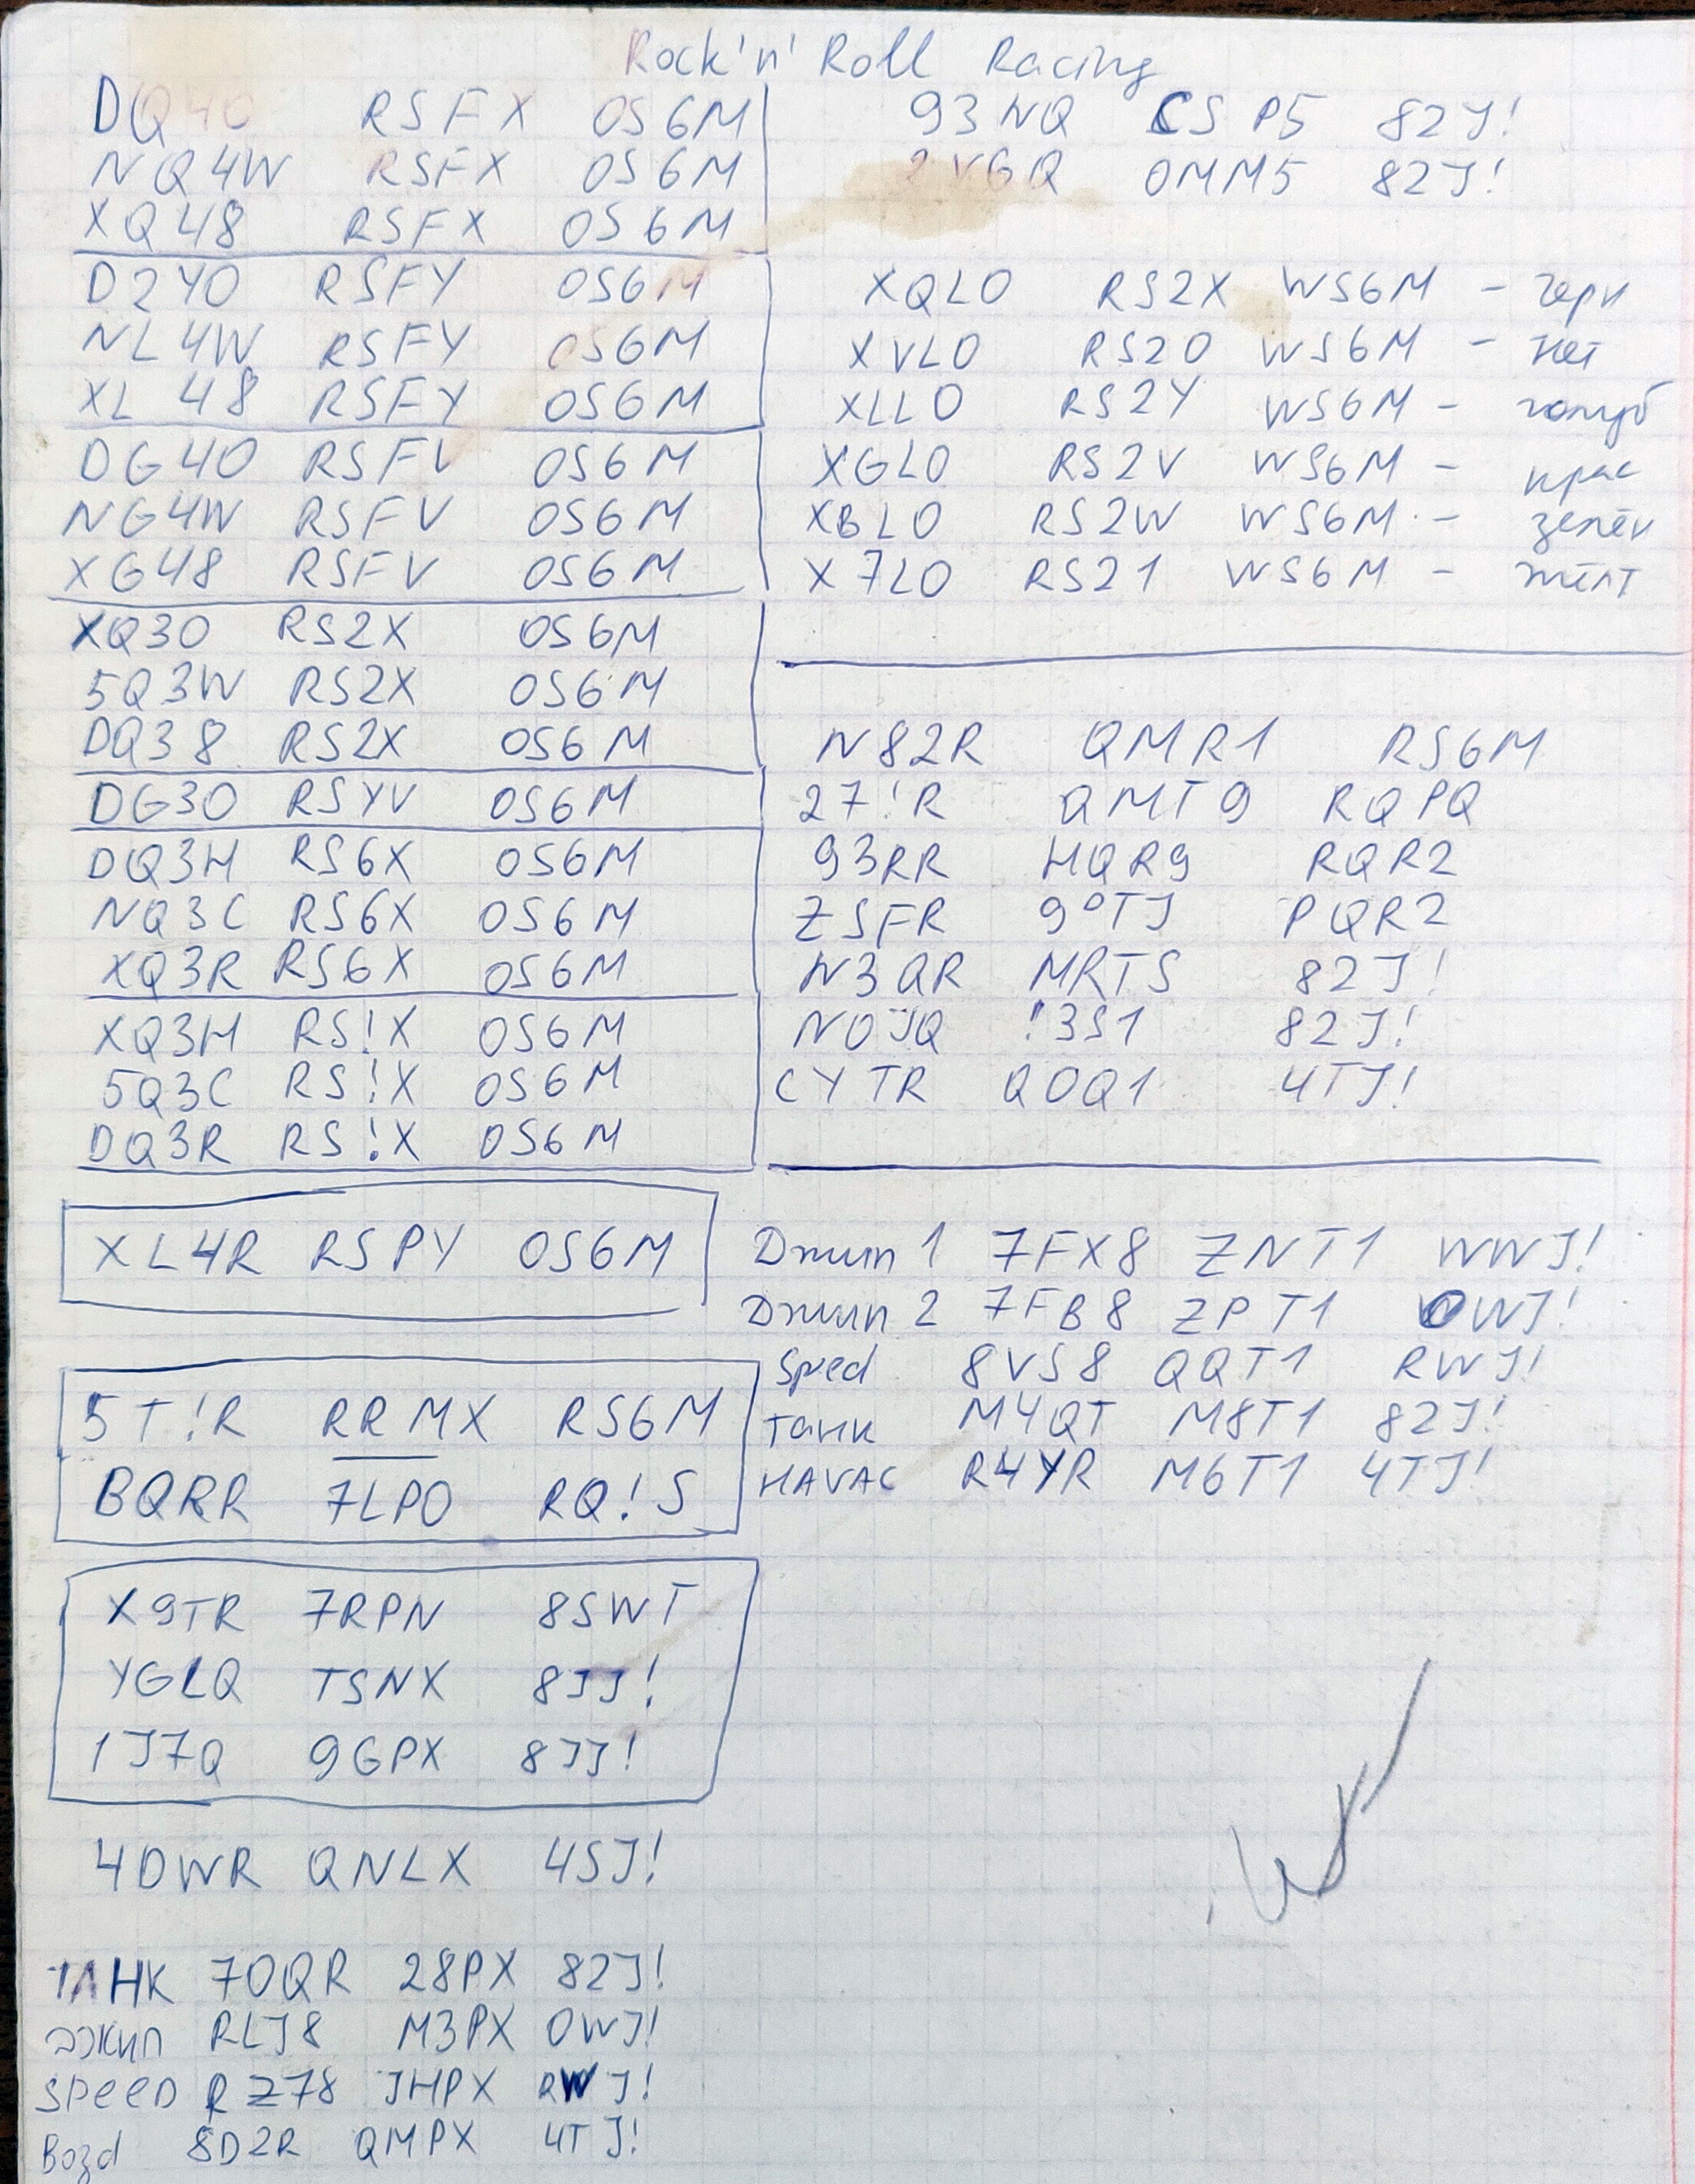 Rock'n' Roll Racing
DQ40 RSFX OS6M
NQ4W RSFX OS6M
XQ48 RSFX OS6M
D2YO RSFY OS6M
NL4W RSFY OS6M
XL 48 RSFY OS6M
DG40 RSFV OS6M
NG4W RSFV OS6M
XG48 RSFV OS6M
XQ30 RS2X OS6M
5Q3W RS2X OS6M
DQ38 RS2X OS6M
DG30 RSYV OS6M
DQ3H RS6X OS6M
NQ3C RS6X OS6M
XQ3R RS6X OS6M
XQ3H RS!X OS6M
5Q3C RS!X OS6M
DQ3R RS!X OS6M
XL4R RSPY OS6M
5T!R RRMX RS6M
BQRR 7LPO RQ!S
X9TR 7RPN 8SWT
YGLQ TSNX 8JJ!
1J7Q 9GPX 8JJ!
4DWR QNLX 4SJ!
ТАНК 70QR 28PX 82J!
джип RLJ8 M3PX OWJ!
SPEED RZ78 JHPX RWJ!
Bozd 8D2R QMPX 4TJ!
93NQ CSP5 82J!
2VGQ OMM5 82J!
XQLO RS2X WS6M - черн
XVLO RS20 WS6M - нет
XLLO RS2Y WS6M - голуб
XGLO RS2V WS6M - крас
XBLO RS2W WS6M - зелён
X7LO RS21 WS6M - жёлт
N82R QMR1 RS6M
27!R QMT9 RQPQ
93RR HQR9 RQR2
ZSFR 90TJ PQR2
N3QR MRTS 82J!
NOJQ !3S1 82J!
CYTR QOQ1 4TJ!
Джип 1 7FX8 ZNT1 WWJ!
Джип 2 7FB8 ZPT1 OWJ!
Sped 8VS8 QQT1 RWJ!
танк M4QT M8T1 82J!
HAVAC R4YR M6T1 4TJ!